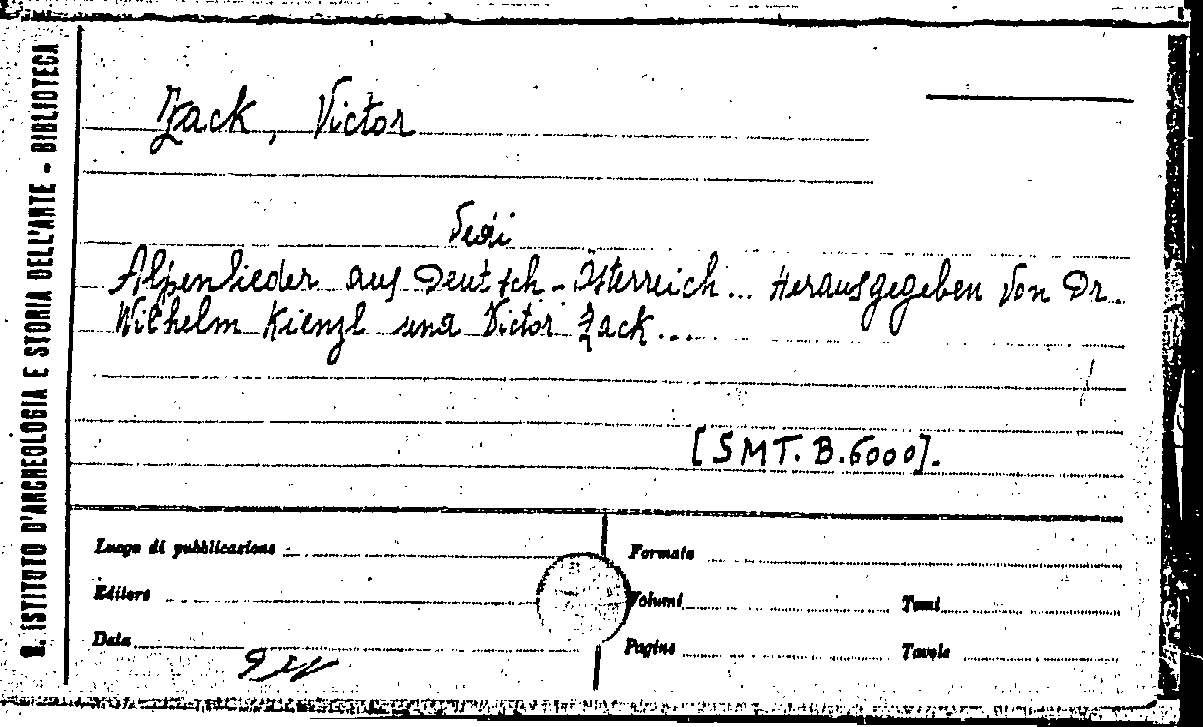 R. ISTITUTO D'ARCHEOLOGIA E STORIA DELL'ARTE - BIBLIOTECA
Zack, Victor
Vedi
Alpenlieder aus Deutsch-Österreich... Herausgegeben von Dr.
Wilhelm Kienzl und Victor Zack...
[SMT. B.6000].
Luogo di pubblicazione
Formato
Editore
Volumi
Tomi
Data
Pagine
Tavole